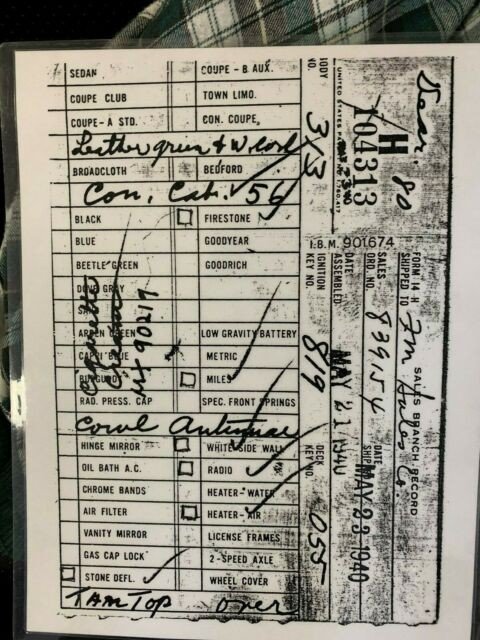 SEDAN COUPE - B. AUX.
COUPE CLUB TOWN LIMO.
COUPE - A STD. CON. COUPE.
Leather green + W. cord
BROADCLOTH BEDFORD
Con. Cab. 56
BLACK FIRESTONE
BLUE GOODYEAR
BEETLE GREEN GOODRICH
DOVE GRAY
LOW GRAVITY BATTERY
CAPRI BLUE METRIC
BURGUNDY MILES
RAD. PRESS. CAP SPEC. FRONT SPRINGS
Cowl Antennae
HINGE MIRROR WHITE SIDE WALL
OIL BATH A.C. RADIO
CHROME BANDS HEATER-WATER
AIR FILTER HEATER-AIR
VANITY MIRROR LICENSE FRAMES
GAS CAP LOCK 2-SPEED AXLE
STONE DEFL. WHEEL COVER
Tan Top over
90219
BODY NO. 313
H
104313
Dear. 80
I.B.M. 901674
IGNITION KEY NO. 819
DECK KEY NO. 055
DATE ASSEMBLED MAY 21 1940
FORM 14 H SALES BRANCH RECORD
SHIPPED TO Zm Sales Co.
SALES ORD. NO. 839154
DATE SHIP MAY 23 1940